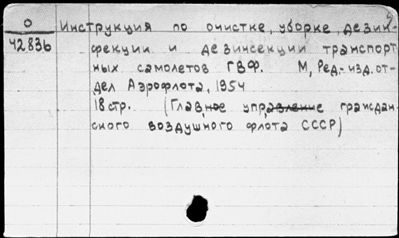 О Инструкция по очистке, уборке, дезин-
42836 фекции и дезинсекции транспорт
ных самолетов ГВФ. М, Ред.-изд. от-
дел Аэрофлота, 1954
18 стр. (Главное управление граждан-
ского воздушного флота СССР)